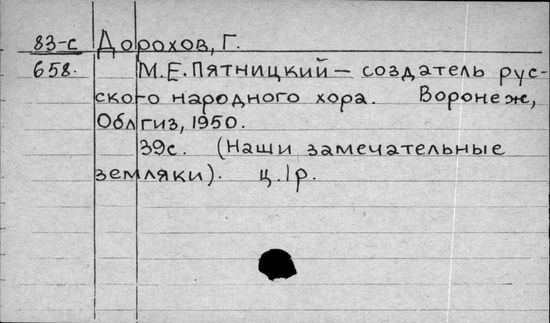 83-с Дорохов, Г.
658. М.Е. Пятницкий — создатель рус-
ского народного хора. Воронеж,
Облгиз, 1950.
39с. (Наши замечательные
земляки). ц. 1р.